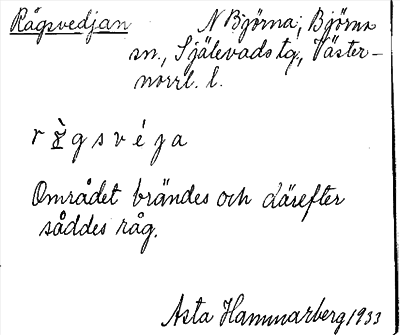 Rågsvedjan N Björna, Björna
sn., Själevads tg., Väster-
norrl. l.
Området brändes och därefter
såddes råg.
Asta Hammarberg 1933